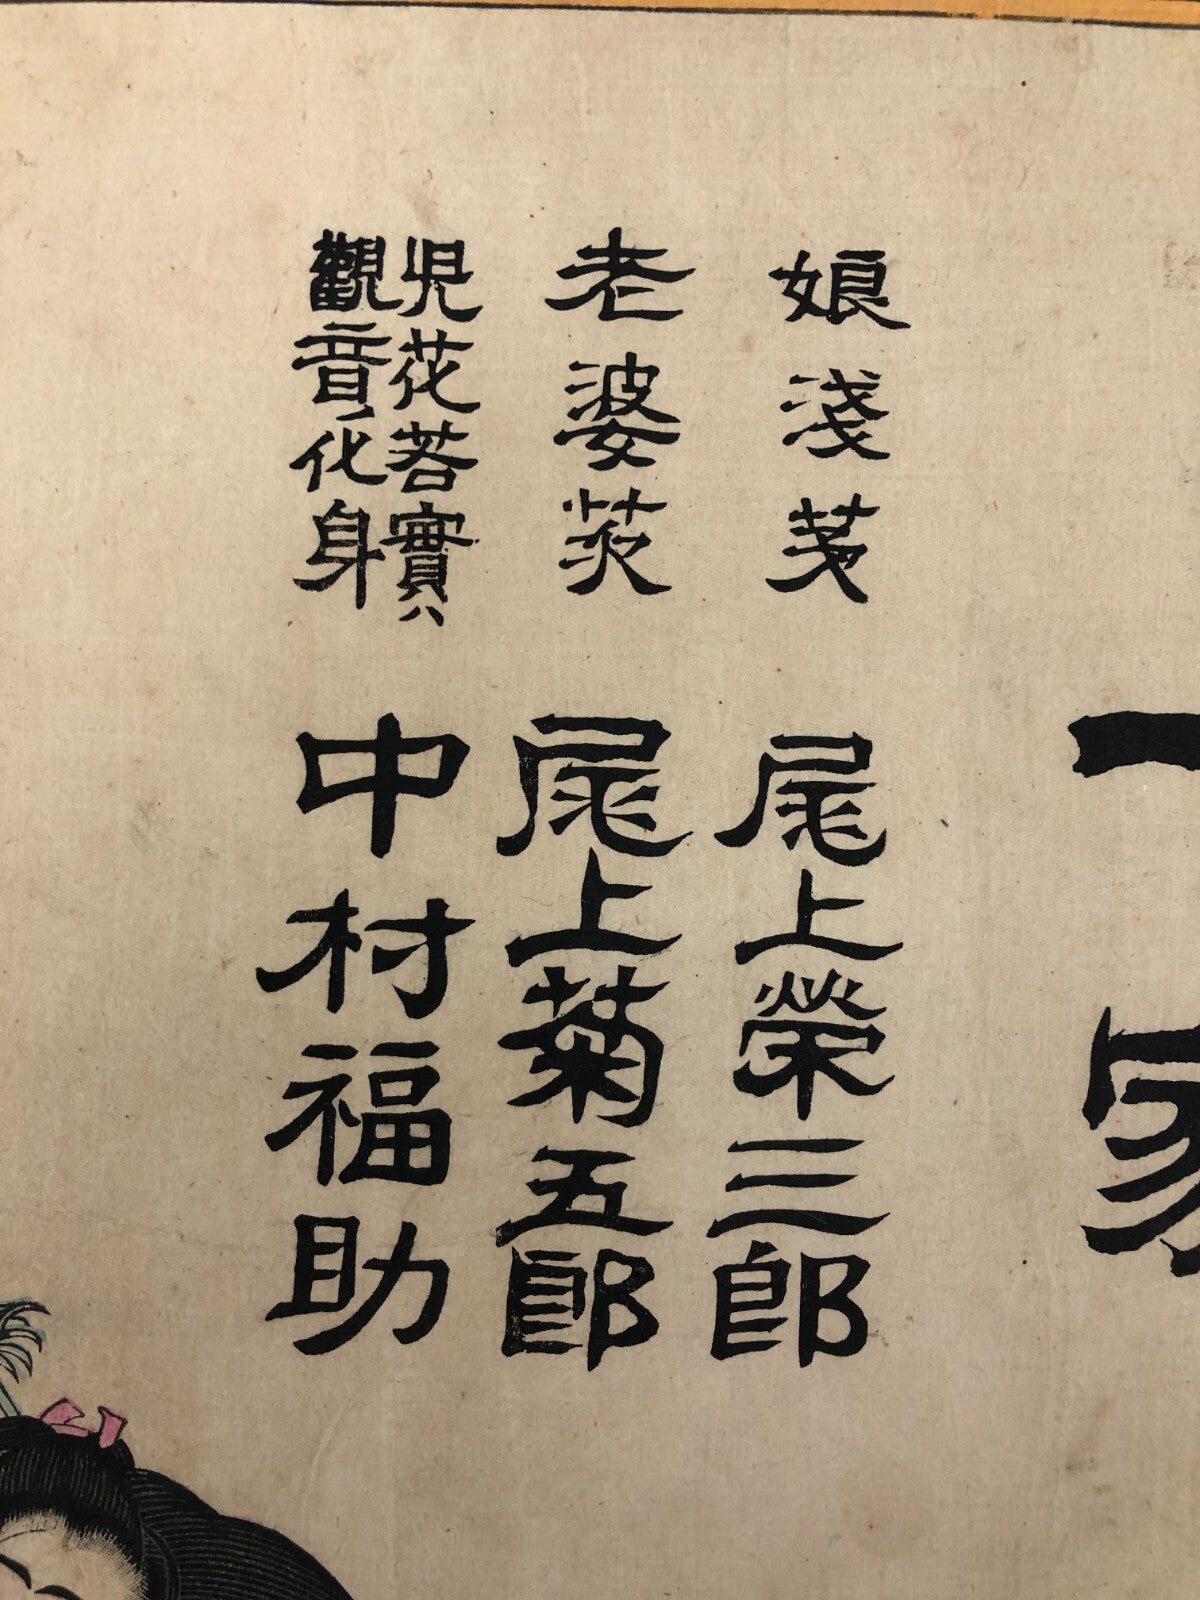 一家
娘淺茅 尾上榮三郎
老婆茨 尾上菊五郎
児花若實ハ
觀音ノ化身
中村福助